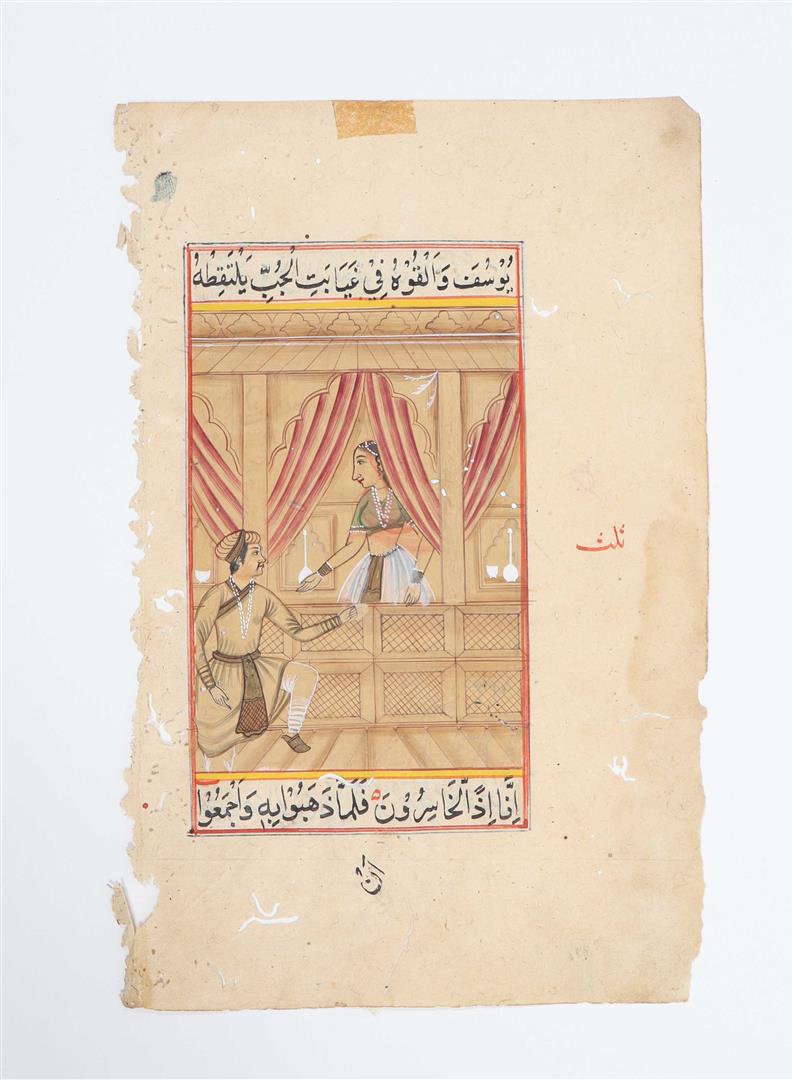 يُوْسُفَ وَاَلْقُوْهُ فِيْ غَيَابَتِ الْجُبِّ يَلْتَقِطْهُ
ثلث
اِنَّا اِذًا لَّخَاسِرُوْنَ ۵ فَلَمَّا ذَهَبُوْا بِهٖ وَاَجْمَعُوْا
اَنْ